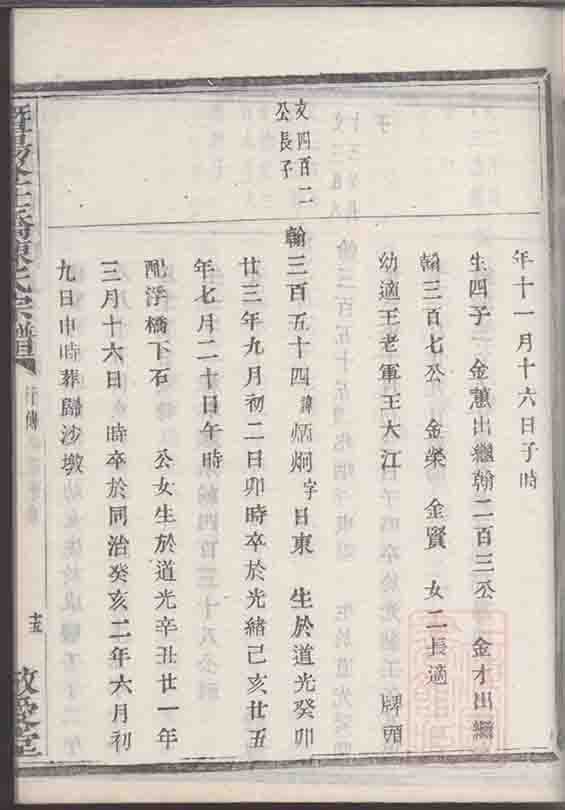 年十一月十六日子時
生四子一金蕙出繼翰二百三公　金才出繼
翰三百七公　金榮　金賢　女二長適　牌頭
幼適王老軍王大江
文四百二
公長子
翰三百五十四諱炳炯字日東　生於道光癸卯
廿三年九月初二日卯時卒於光緒己亥廿五
年七月二十日午時
配浮橋下石　公女生於道光辛丑廿一年
三月十六日　時卒於同治癸亥二年六月初
九日申時葬歸沙墩
陳氏宗譜
行傳
十五
敬愛堂